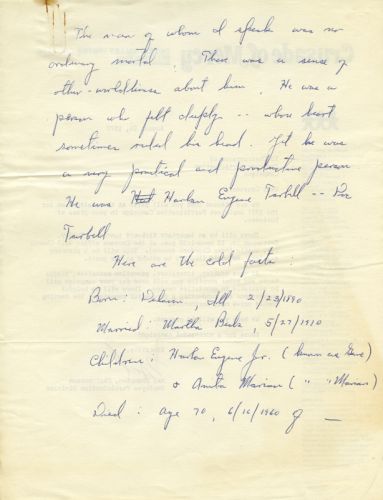 The man of whom I speak was no
ordinary mortal. There was a sense of
other-worldliness about him. He was a
person who felt deeply -- whose heart
sometimes ruled his head. Yet he was
a very practical and productive person
He was Harlan Eugene Tarbell -- Doc
Tarbell.
Here are the cold facts:
Born: Delavan, Ill. 2/23/1890
Married: Martha Beck, 5/27/1910
Children: Harlan Eugene Jr. (known as Gene)
& Anita Marian ( " " Marian)
Died: Age 70, 6/16/1960
Crusade of Mercy